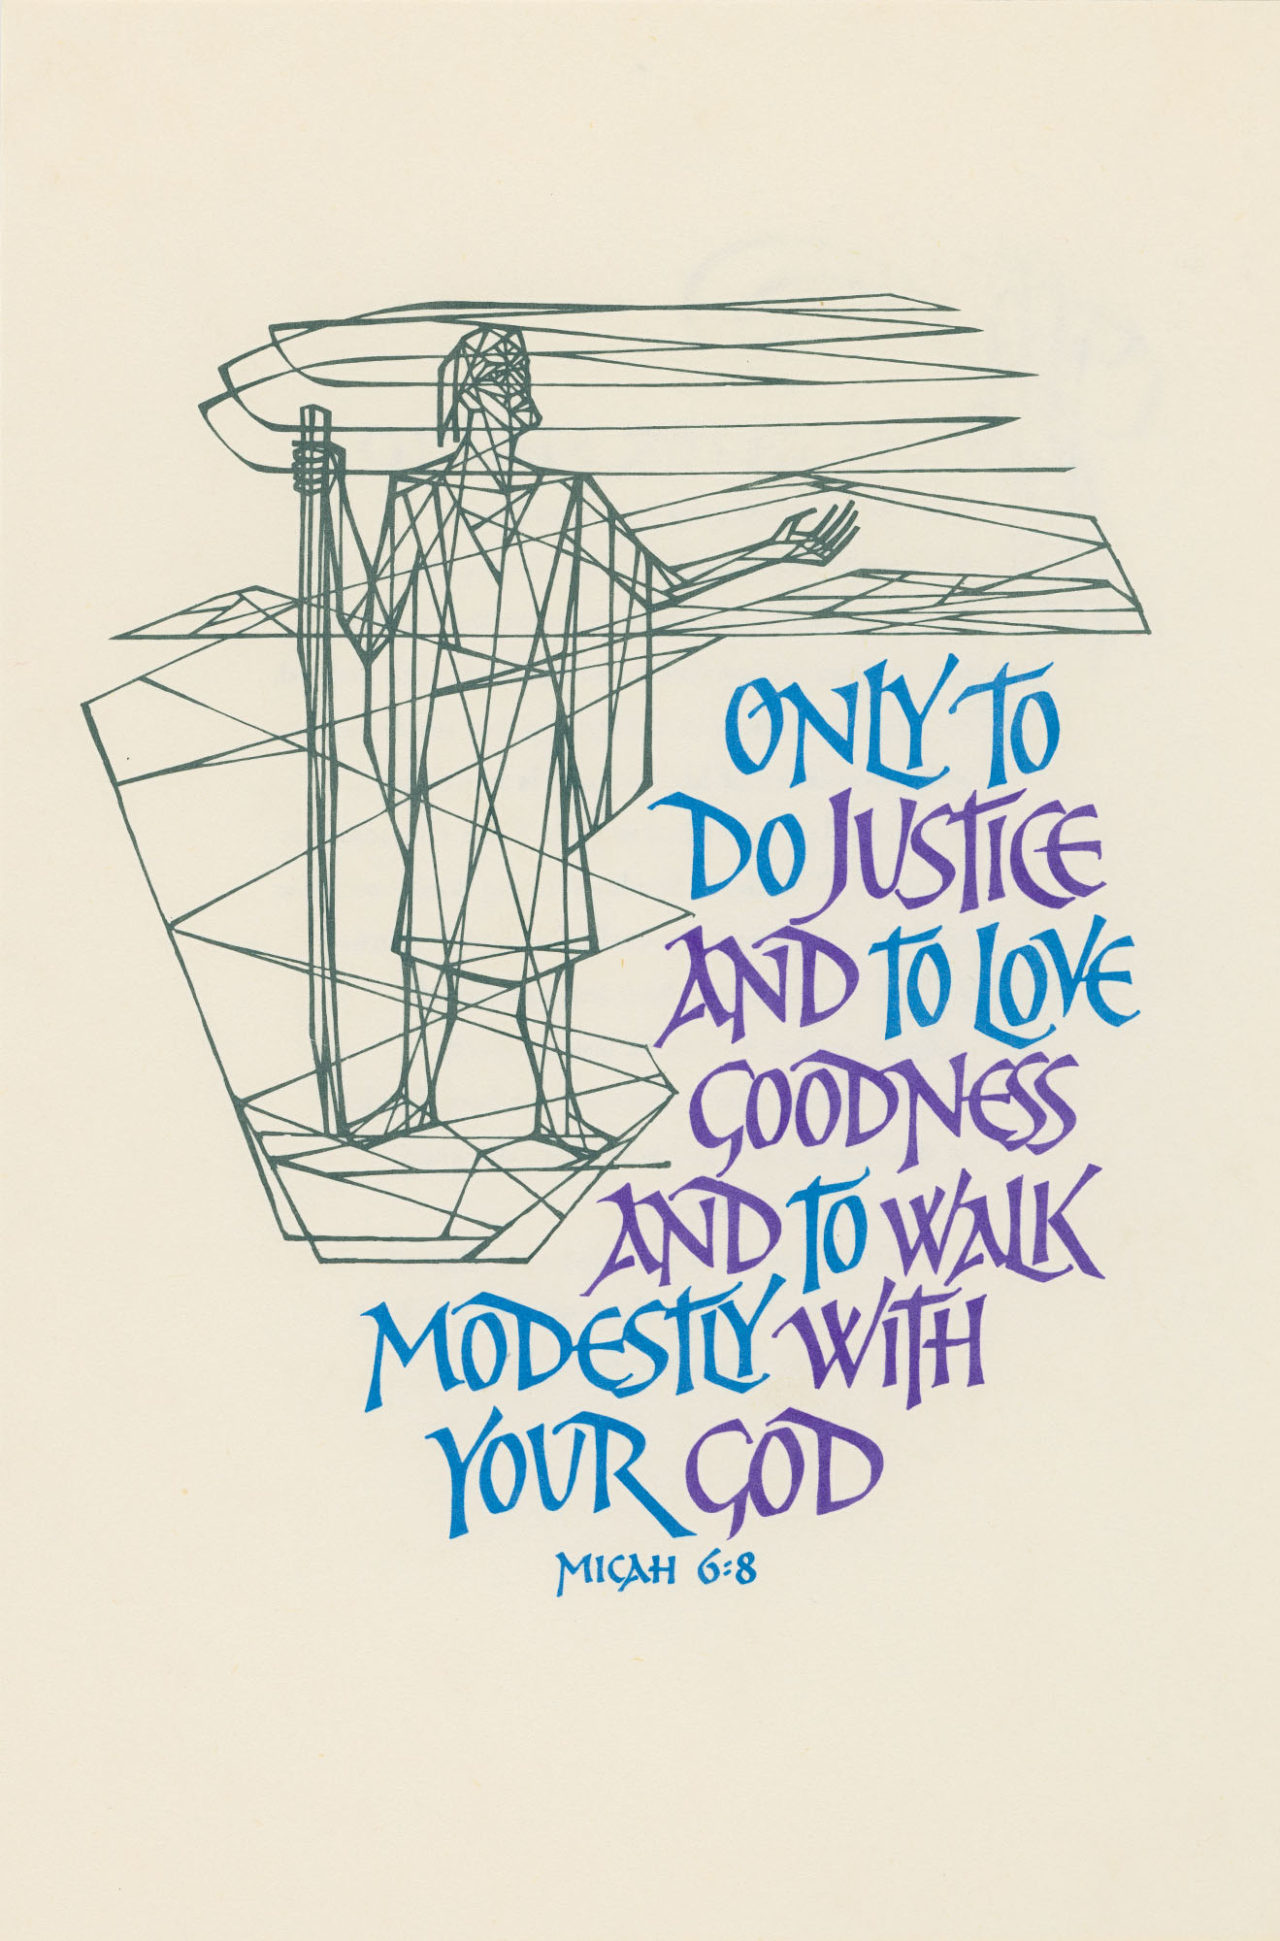 ONLY TO
DO JUSTICE
AND TO LOVE
GOODNESS
AND TO WALK
MODESTLY WITH
YOUR GOD
MICAH 6:8